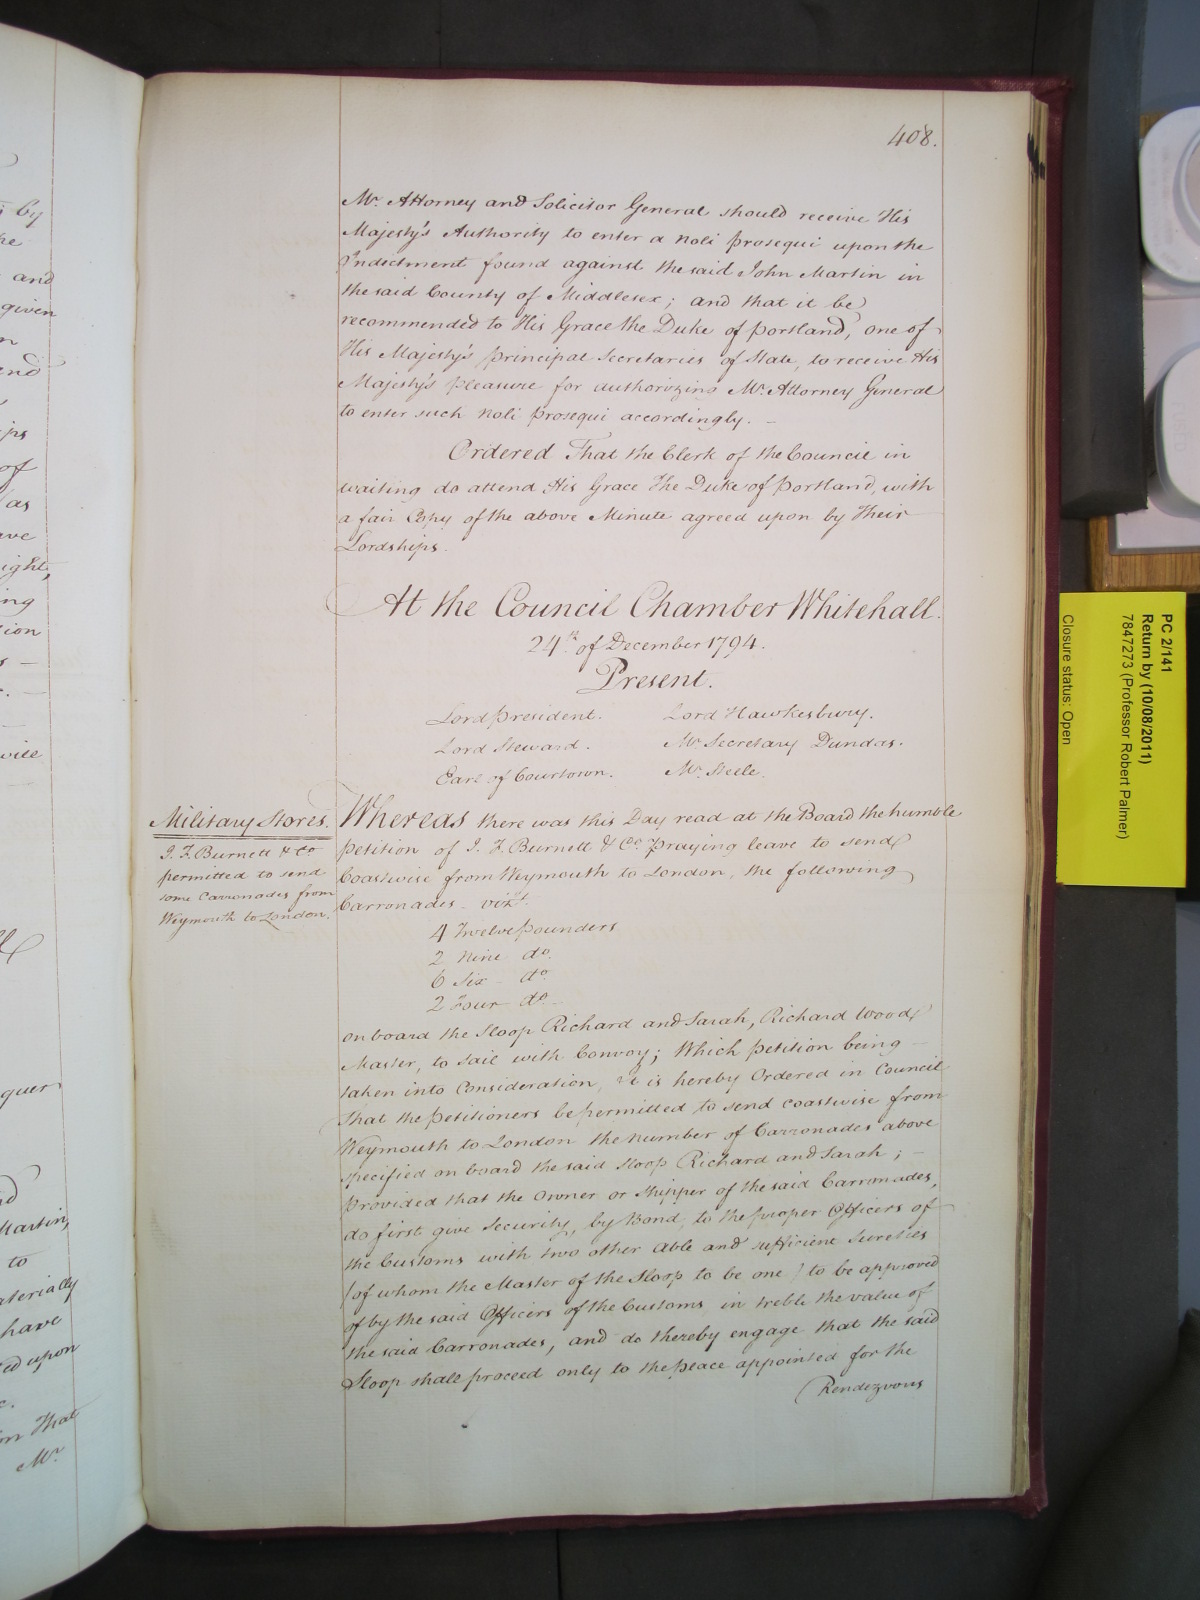 408.
Mr. Attorney and Solicitor General should receive His
Majesty's Authority to enter a Noli prosequi upon the
Indictment found against the said John Martin in
the said County of Middlesex; and that it be
recommended to His Grace the Duke of Portland, one of
His Majesty's principal Secretaries of State, to receive His
Majesty's pleasure for authorizing Mr. Attorney General
to enter such Noli prosequi accordingly. –
Ordered That the Clerk of the Council in
waiting do attend His Grace The Duke of Portland, with
a fair Copy of the above Minute agreed upon by Their
Lordships.
At the Council Chamber Whitehall.
24th. of December 1794.
Present.
Lord President. Lord Hawkesbury.
Lord Steward. Mr. Secretary Dundas.
Earl of Courtown. Mr. Steele.
Military Stores.
J. F. Burnett & Co
permitted to send
some Carronades from
Weymouth to London.
Whereas there was this Day read at the Board the humble
petition of J. F. Burnett & Co. praying leave to send
Coastwise from Weymouth to London, the following
Carronades – vizt.
4 Twelve pounders
2 Nine do.
6 Six – do
2 Four – do –
on board the Sloop Richard and Sarah, Richard Wood
Master, to sail with Convoy; Which petition being –
taken into Consideration, it is hereby Ordered in Council
That the petitioners be permitted to send coastwise from
Weymouth to London the number of Carronades above
specified on board the said Sloop Richard and Sarah; –
provided that the Owner or Shipper of the said Carronades,
do first give Security, by Bond, to the proper Officers of
the Customs with two other able and sufficient Sureties
(of whom the Master of the Sloop to be one) to be approved
of by the said Officers of the Customs in treble the value of
the said Carronades, and do thereby engage that the said
Sloop shall proceed only to the place appointed for the
Rendezvous
PC 2/141
Return by (10/08/2011)
7847273 (Professor Robert Palmer)
Closure status: Open
by
and
given
of
as
ing
quer
Martin,
to
have
upon
That
Mr.